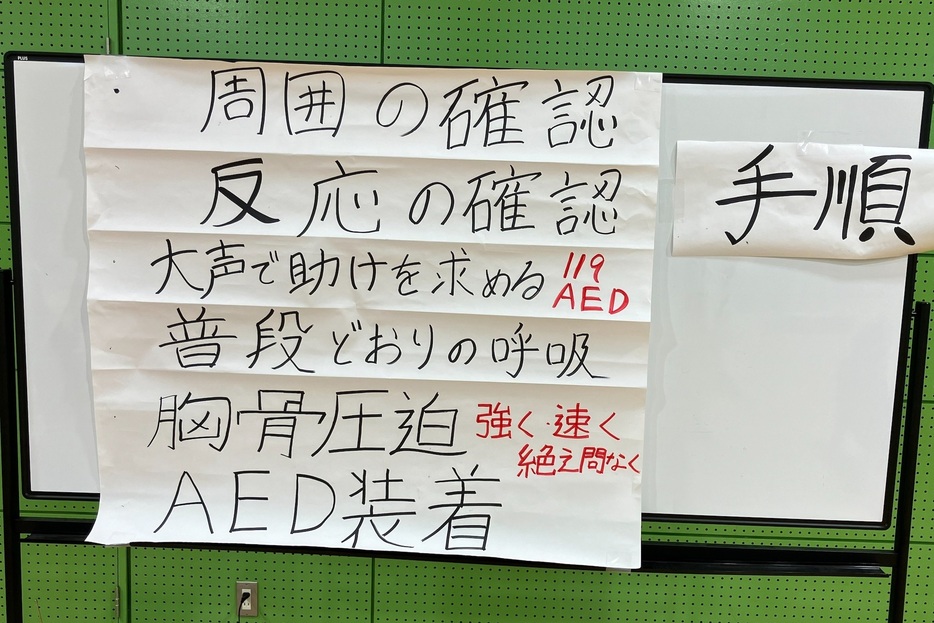 PLUS
手順
周囲の確認
反応の確認
大声で助けを求める 119 AED
普段どおりの呼吸
胸骨圧迫 強く・速く 絶え間なく
AED装着